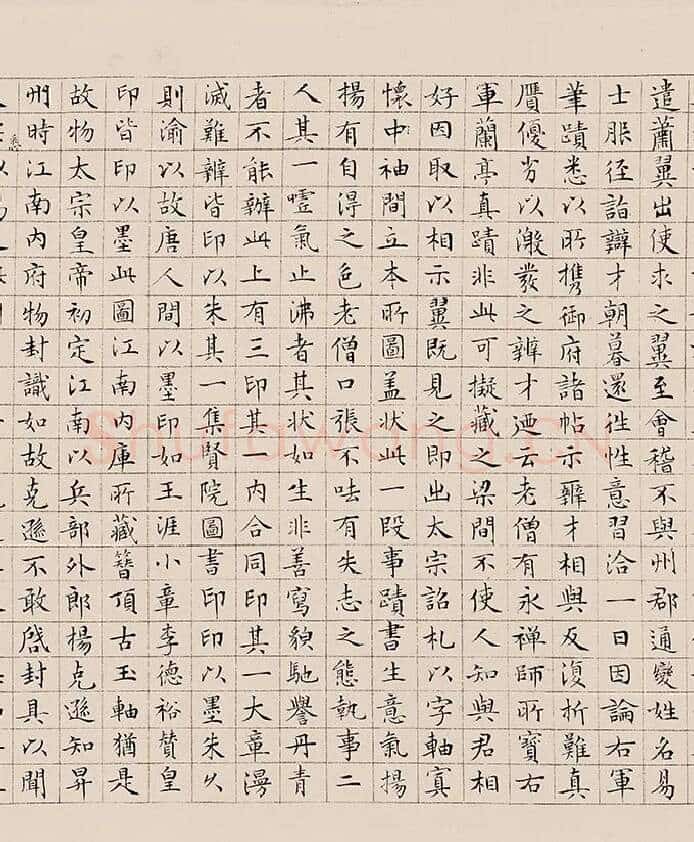 遣蕭翼出使求之翼至會稽不與州郡通變姓名易
士服徑詣辯才朝暮還徃性意習洽一日因論右軍
筆蹟悉以所攜御府諸帖示辯才相與反復折難真
贋優劣以激發之辨才廼云老僧有永禅師所寶右
軍蘭亭真蹟非此可擬藏之梁間不使人知與君相
好因取以相示翼既見之即出太宗詔札以字軸寘
懷中袖間立本所圖盖状此一段事蹟書生意氣揚
揚有自得之色老僧口張不呿有失志之態執事二
人其一噓氣止沸者其状如生非善寫貌馳譽丹青
者不能辦此上有三印其一内合同印其一大章漫
滅難辨皆印以朱其一集賢院圖書印印以墨朱久
則渝以故唐人間以墨印如王涯小章李德裕賛皇
印皆印以墨此圖江南内庫所藏簪頂古玉軸猶是
故物太宗皇帝初定江南以兵部外郎楊克遜知昇
州時江南内府物封識如故克遜不敢啓封具以聞
Shufawang.CN